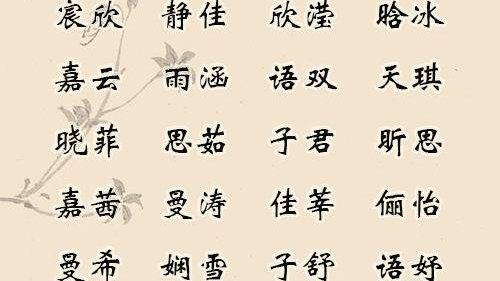 宸欣 静佳 欣滢 晗冰
嘉云 雨涵 语双 天琪
晓菲 思茹 子君 昕思
嘉茜 曼涛 佳莘 俪怡
曼希 娴雪 子舒 语妤